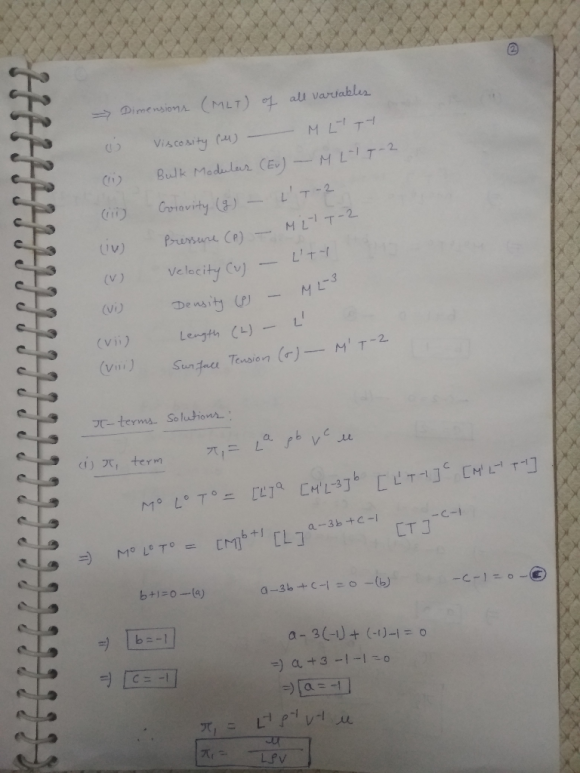 ②
⇒ Dimensions (MLT) of all variables
(i) Viscosity (μ) — M L⁻¹ T⁻¹
(ii) Bulk Modulus (Ev) — M L⁻¹ T⁻²
(iii) Gravity (g) — L¹ T⁻²
(iv) Pressure (P) — M L⁻¹ T⁻²
(v) Velocity (V) — L¹ T⁻¹
(vi) Density (ρ) — M L⁻³
(vii) Length (L) — L¹
(viii) Surface Tension (σ) — M¹ T⁻²
π-terms solutions:
(i) π₁ term π₁ = Lᵃ ρᵇ Vᶜ μ
M⁰ L⁰ T⁰ = [L¹]ᵃ [M¹L⁻³]ᵇ [L¹T⁻¹]ᶜ [M¹L⁻¹T⁻¹]
⇒ M⁰ L⁰ T⁰ = [M]ᵇ⁺¹ [L]ᵃ⁻³ᵇ⁺ᶜ⁻¹ [T]⁻ᶜ⁻¹
b+1=0 —(a) a-3b+c-1=0 —(b) -c-1=0 —(c)
⇒ b=-1 a-3(-1)+(-1)-1=0
⇒ a+3-1-1=0
⇒ c=-1
⇒ a=-1
∴ π₁ = L⁻¹ ρ⁻¹ V⁻¹ μ
π₁ = μ/LρV